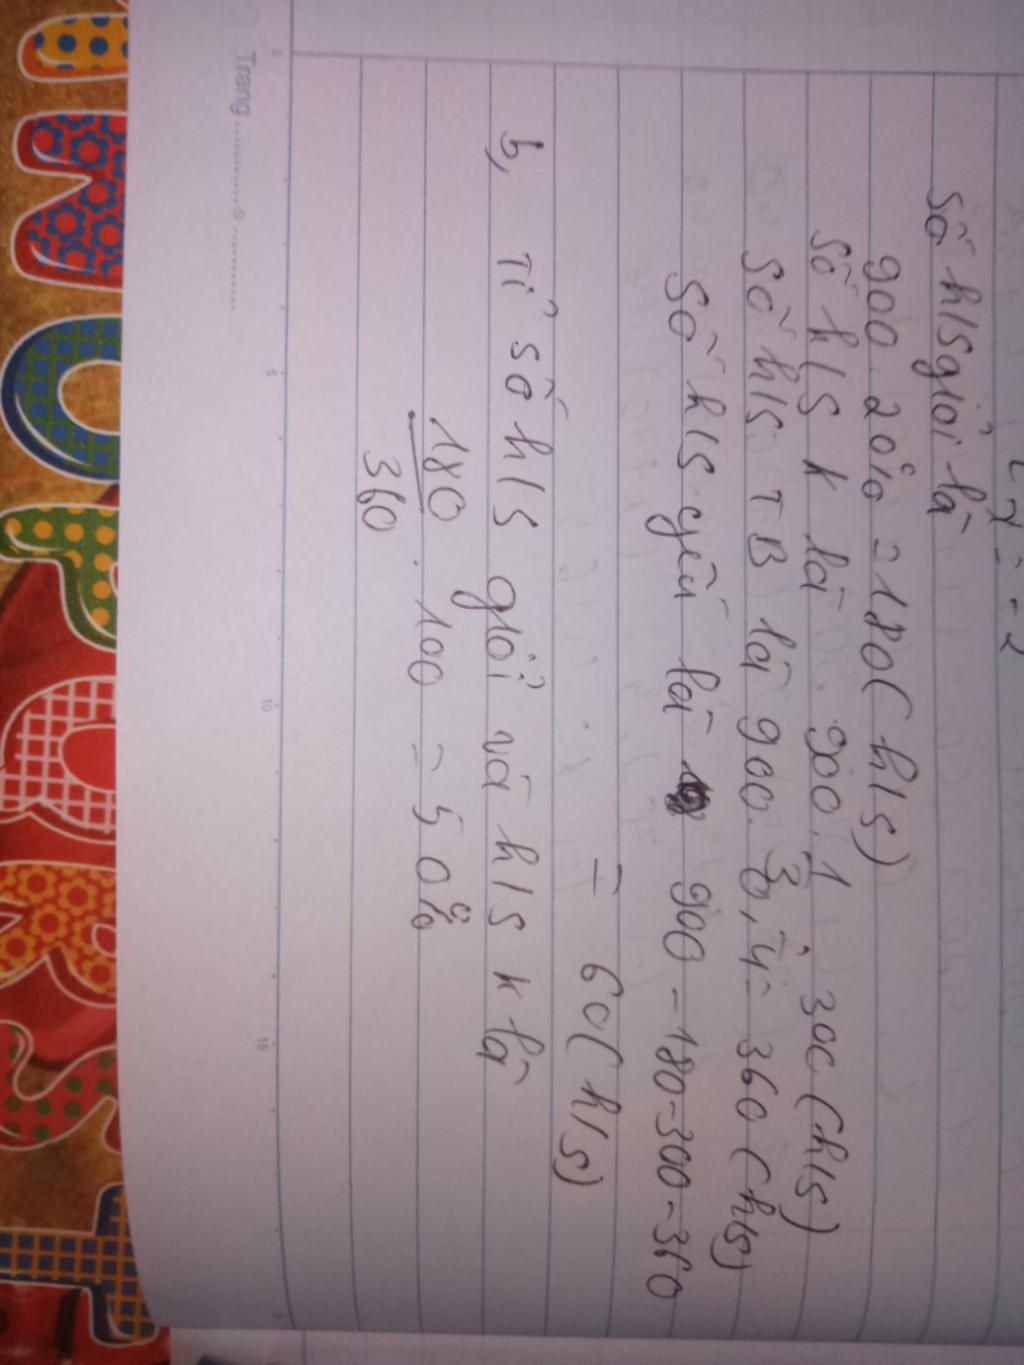 số h/s giỏi là
900 . 20% = 180 (h/s)
số h/s k là 900 . 1 300 (h/s)
số h/s TB là 900 . 0,4 = 360 (h/s)
số h/s yếu là 900 - 180 - 300 - 360
= 60 (h/s)
b, Tỉ số h/s giỏi và h/s k là
180 . 100 = 50%
360
Trang